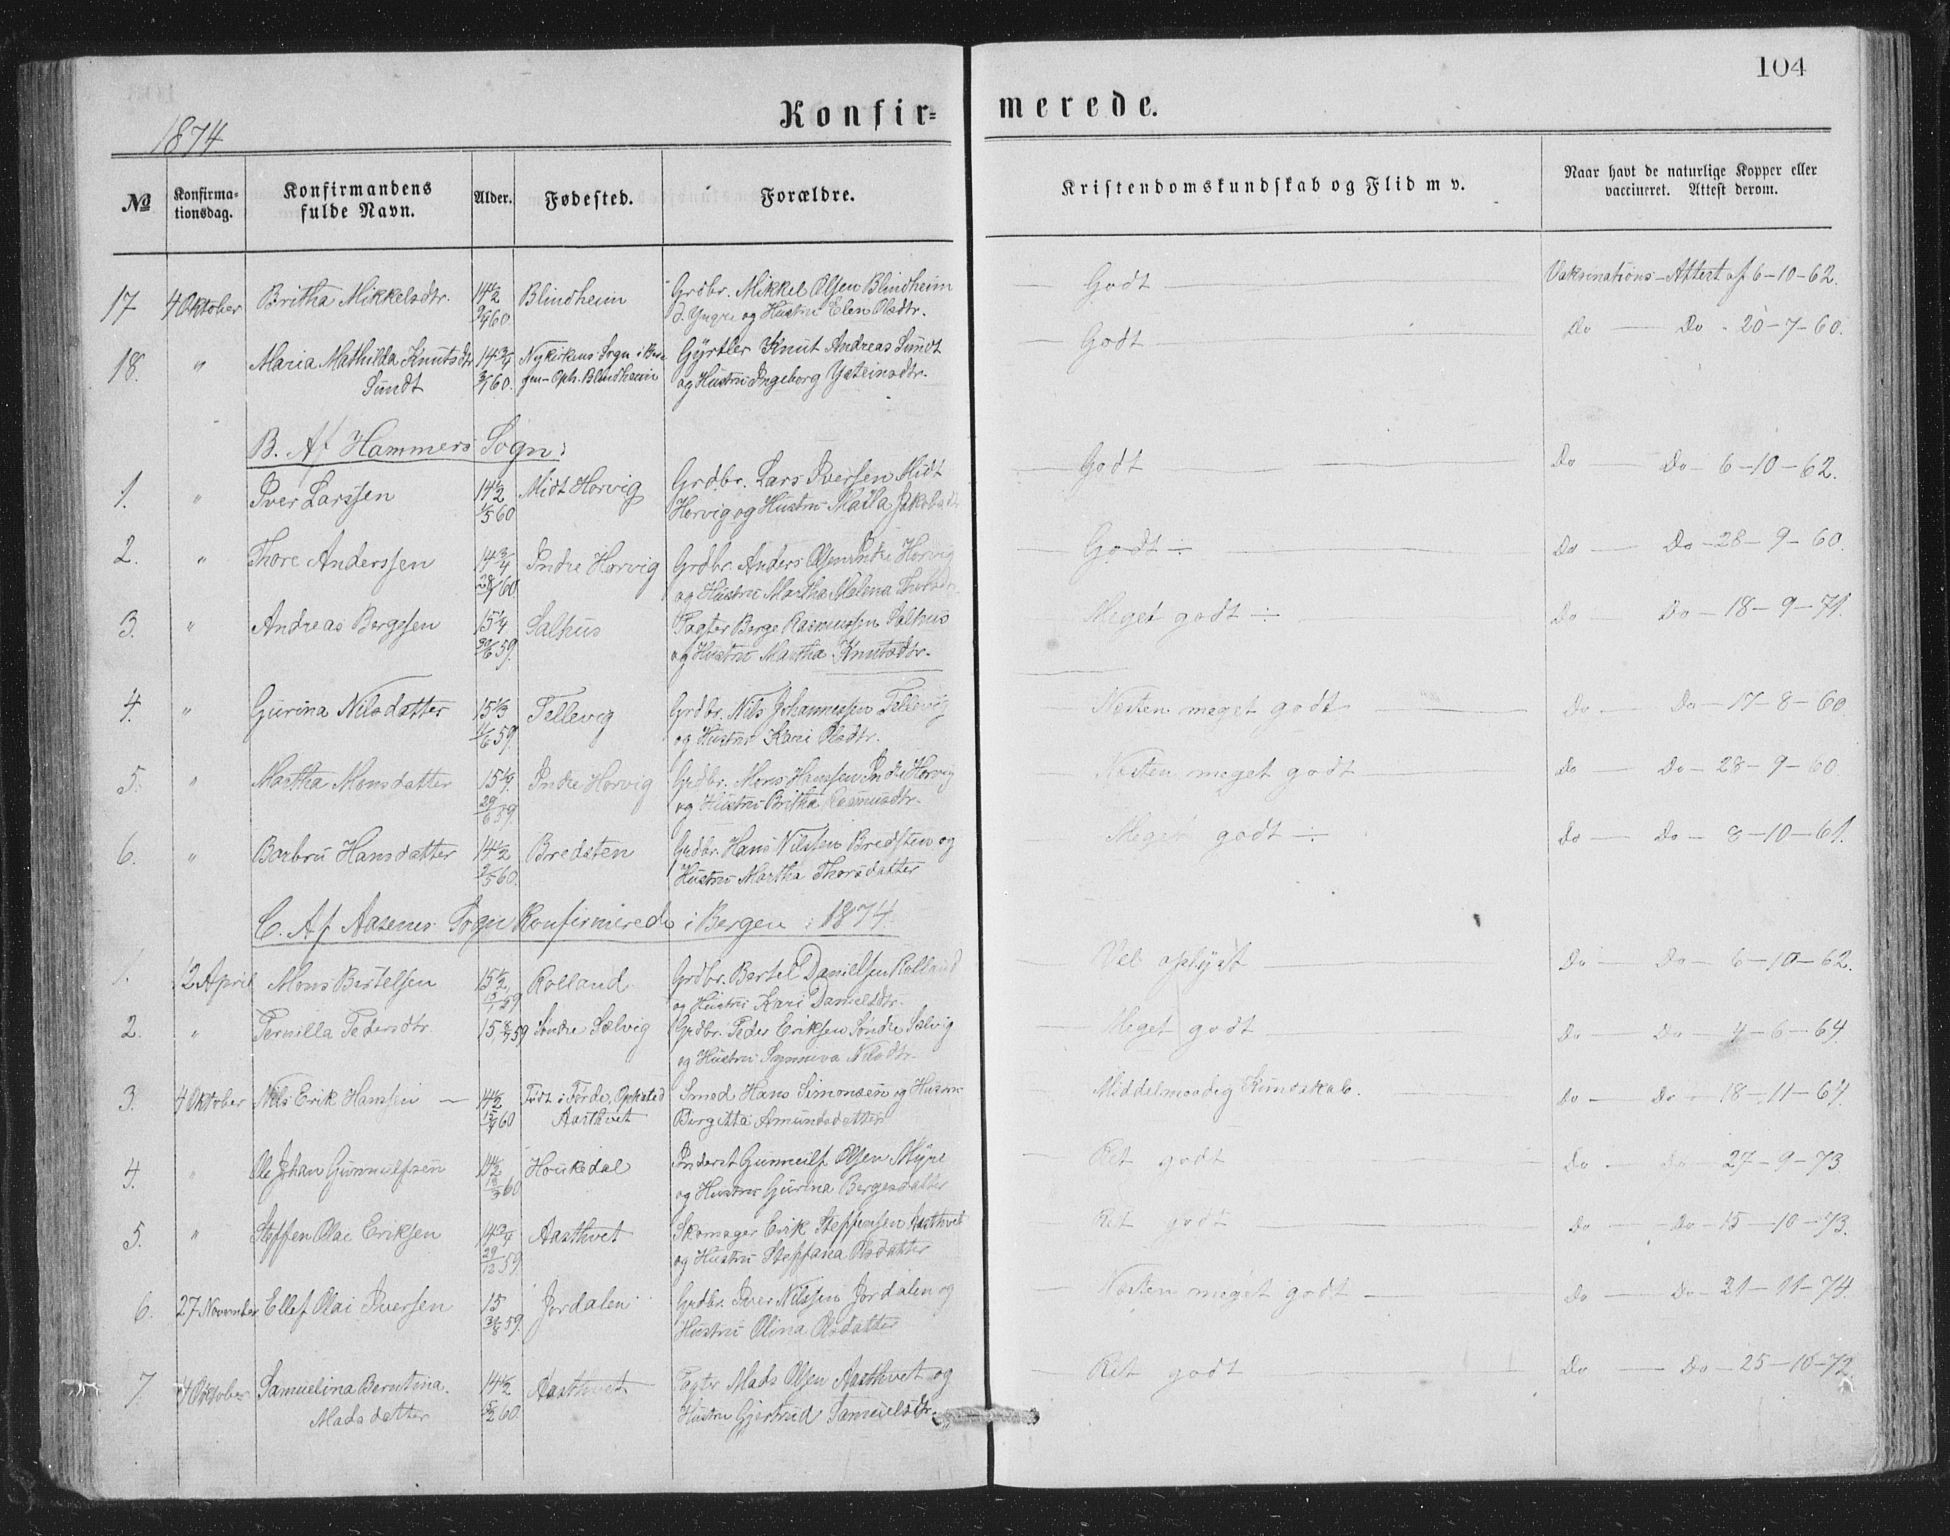 104
Konfir=
merede.
1874
№
Konfirma-
tionsdag.
Konfirmandens
fulde Navn.
Alder.
Fødested.
Forældre.
Kristendomskundskab og Flid m v.
Naar havt de naturlige Kopper eller
vaccineret. Attest derom.
17 4 Oktober Britha Mikkelsdtr. 14½ Blindheim Grdbr. Mikkel Olsen Blindheim — Godt — Vaksinations-Attest af 6-10-62.
60. og Hustru Elen Olsdtr.
18. " Maria Mathilda Knutsdtr 14¾ Nykirkens Sogn i Ber Gyrtler Knut Andreas Sundt — Godt — Do — Do - 20-7-60.
Sundt 60. gen-Oph. Blindheim og Hustru Ingeborg Ysteinsdtr.
B. Af Hammers Sogn:
1. " Iver Larssen 14½ Midt Horvig Grdbr. Lars Iversen Midt — Godt — Do — Do - 6-10-62.
1/5 60 Horvig og Hustru Jakobsdtr
2. " Thore Anderssen 14¾ Indre Horvig Grdbr. Anders Olsen Indre Horvig — Godt ÷ — Do — Do - 28-9-60.
60 og Hustru Martha Malena
3. " Andreas Bergssen 15¼ Salhus Pagter Berge Rasmussen Salhus — Meget godt ÷ — Do — Do - 18-9-71.
59. og Hustru Martha Knutsdtr.
4. " Gurina Nilsdatter 15⅓ Tellevig Grdbr. Nils Johannessen Tellevig — Nesten meget godt — Do — Do - 17-8-60
1/6 59. og Hustru Kari Olsdtr.
5. " Martha Monsdatter 15¼. Indre Horvig Grdbr. Mons Hanssen Indre Horvig — Nesten meget godt — Do — Do - 28-9-60.
29/6 59. og Hustru Britha Rasmusdtr.
6. " Barbru Hansdatter 14½ Bredsten Grdbr. Hans Nilsen Bredsten og — Meget godt ÷ — Do — Do - 8-10-61.
2/5 60. Hustru Martha Thorsdatter
C. Af Aasenes Sogn Konfirmerede i Bergen: 1874.
1. 12 April Mons Bertelsen 15½ Rolland Grdbr. Bertel Danielsen Rolland — Vel oplyst — Do — Do - 6-10-62.
59 og Hustru Kari Danielsdtr.
2. " Pernilla Pedersdtr. 15 59 Søndre Sælvig Grdbr. Peder Eriksen Søndre Sælvig — Meget godt — Do — Do - 4-6-64.
og Hustru Synneva Nilsdtr.
3. 4 Oktober Nils Erik Hanssen — 14½ Født i Førde, Opholdsted Smed Hans Simonsen og Hustru — Middelmaadig Kundskab. — Do — Do - 18-11-61.
60 Aasthvet Birgitta Amundsdatter
4. " Ole Johan Gunnulfsen 14½ Houkedal Inderst Gunnulf Olsen Myre — Ret godt — Do — Do - 27-9-73
60 og Hustru Gurina Bergesdatter
5. " Steffen Olai Eriksen 14¾ Aasthvet Skomager Erik Steffensen Aasthvet — Ret godt — Do — Do - 15-10-73.
29/12 59. og Hustru Steffana Olsdatter
6. 27 November Ellef Olai Iversen 15 Jordalen Grdbr. Iver Nilssen Jordalen og — Nesten meget godt — Do — Do - 21-11-74.
59. Hustru Olina Olsdatter
7 4 Oktober Samuelina Berntina 14½ Aasthvet Pagter Mads Olsen Aasthvet og — Ret godt — Do — Do - 25-10-72.
Madsdatter 60. Hustru Gjertrud Samuelsdtr.